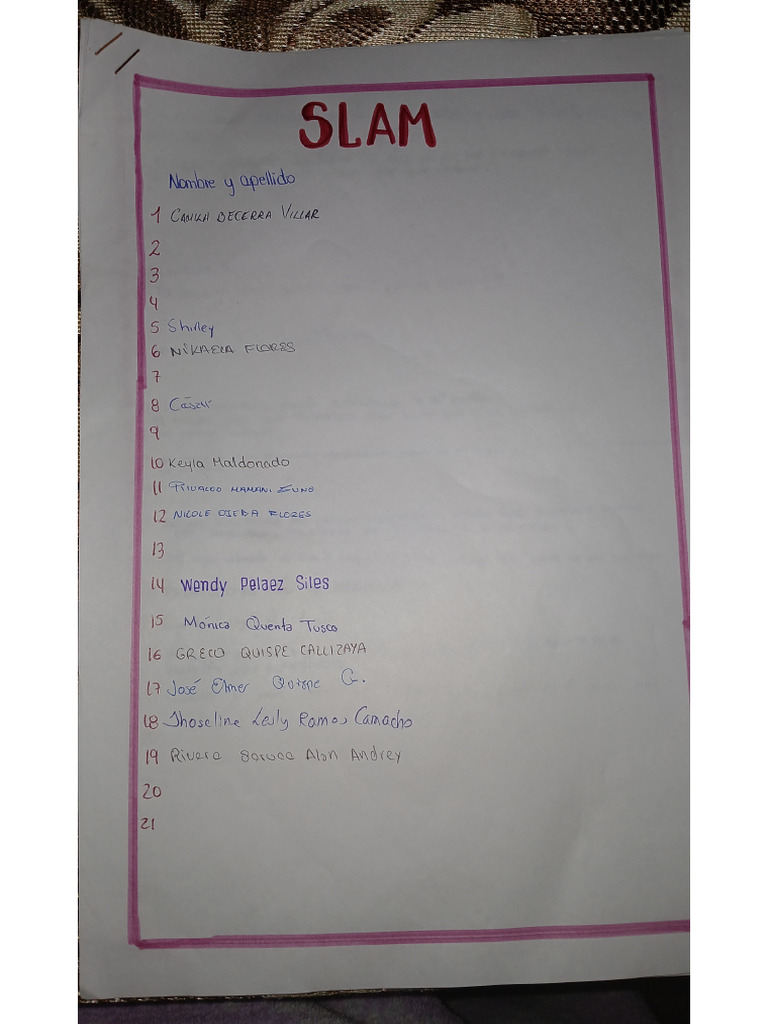 SLAM
Nombre y apellido
1 CAMILA BECERRA VILLAR
2
3
4
5 Shirley
6 NIKAELA FLORES
7
8 César
9
10 Keyla Maldonado
11 RIVALDO MAMANI ZUNO
12 NICOLE OJEDA FLORES
13
14 Wendy Pelaez Siles
15 Mónica Quenta Tusco
16 GRECO QUISPE CALLIZAYA
17 José Elmer Quispe G.
18 Jhoseline Lesly Ramos Camacho
19 Rivera Alan Andrey
20
21